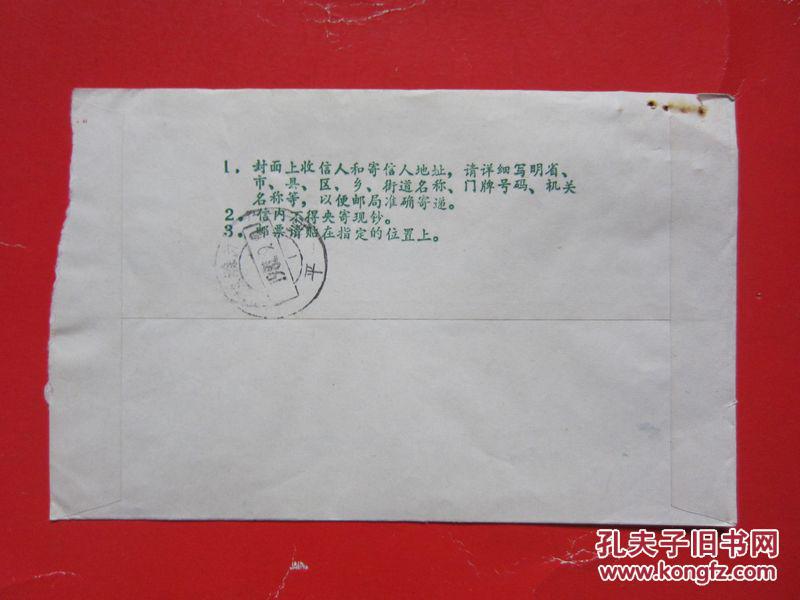 1. 封面上收信人和寄信人地址，请详细写明省、
市、县、区、乡、街道名称、门牌号码、机关
名称等，以便邮局准确寄递。
2. 信内不得夹寄现钞。
3. 邮票请贴在指定的位置上。
平
孔夫子旧书网
www.kongfz.com